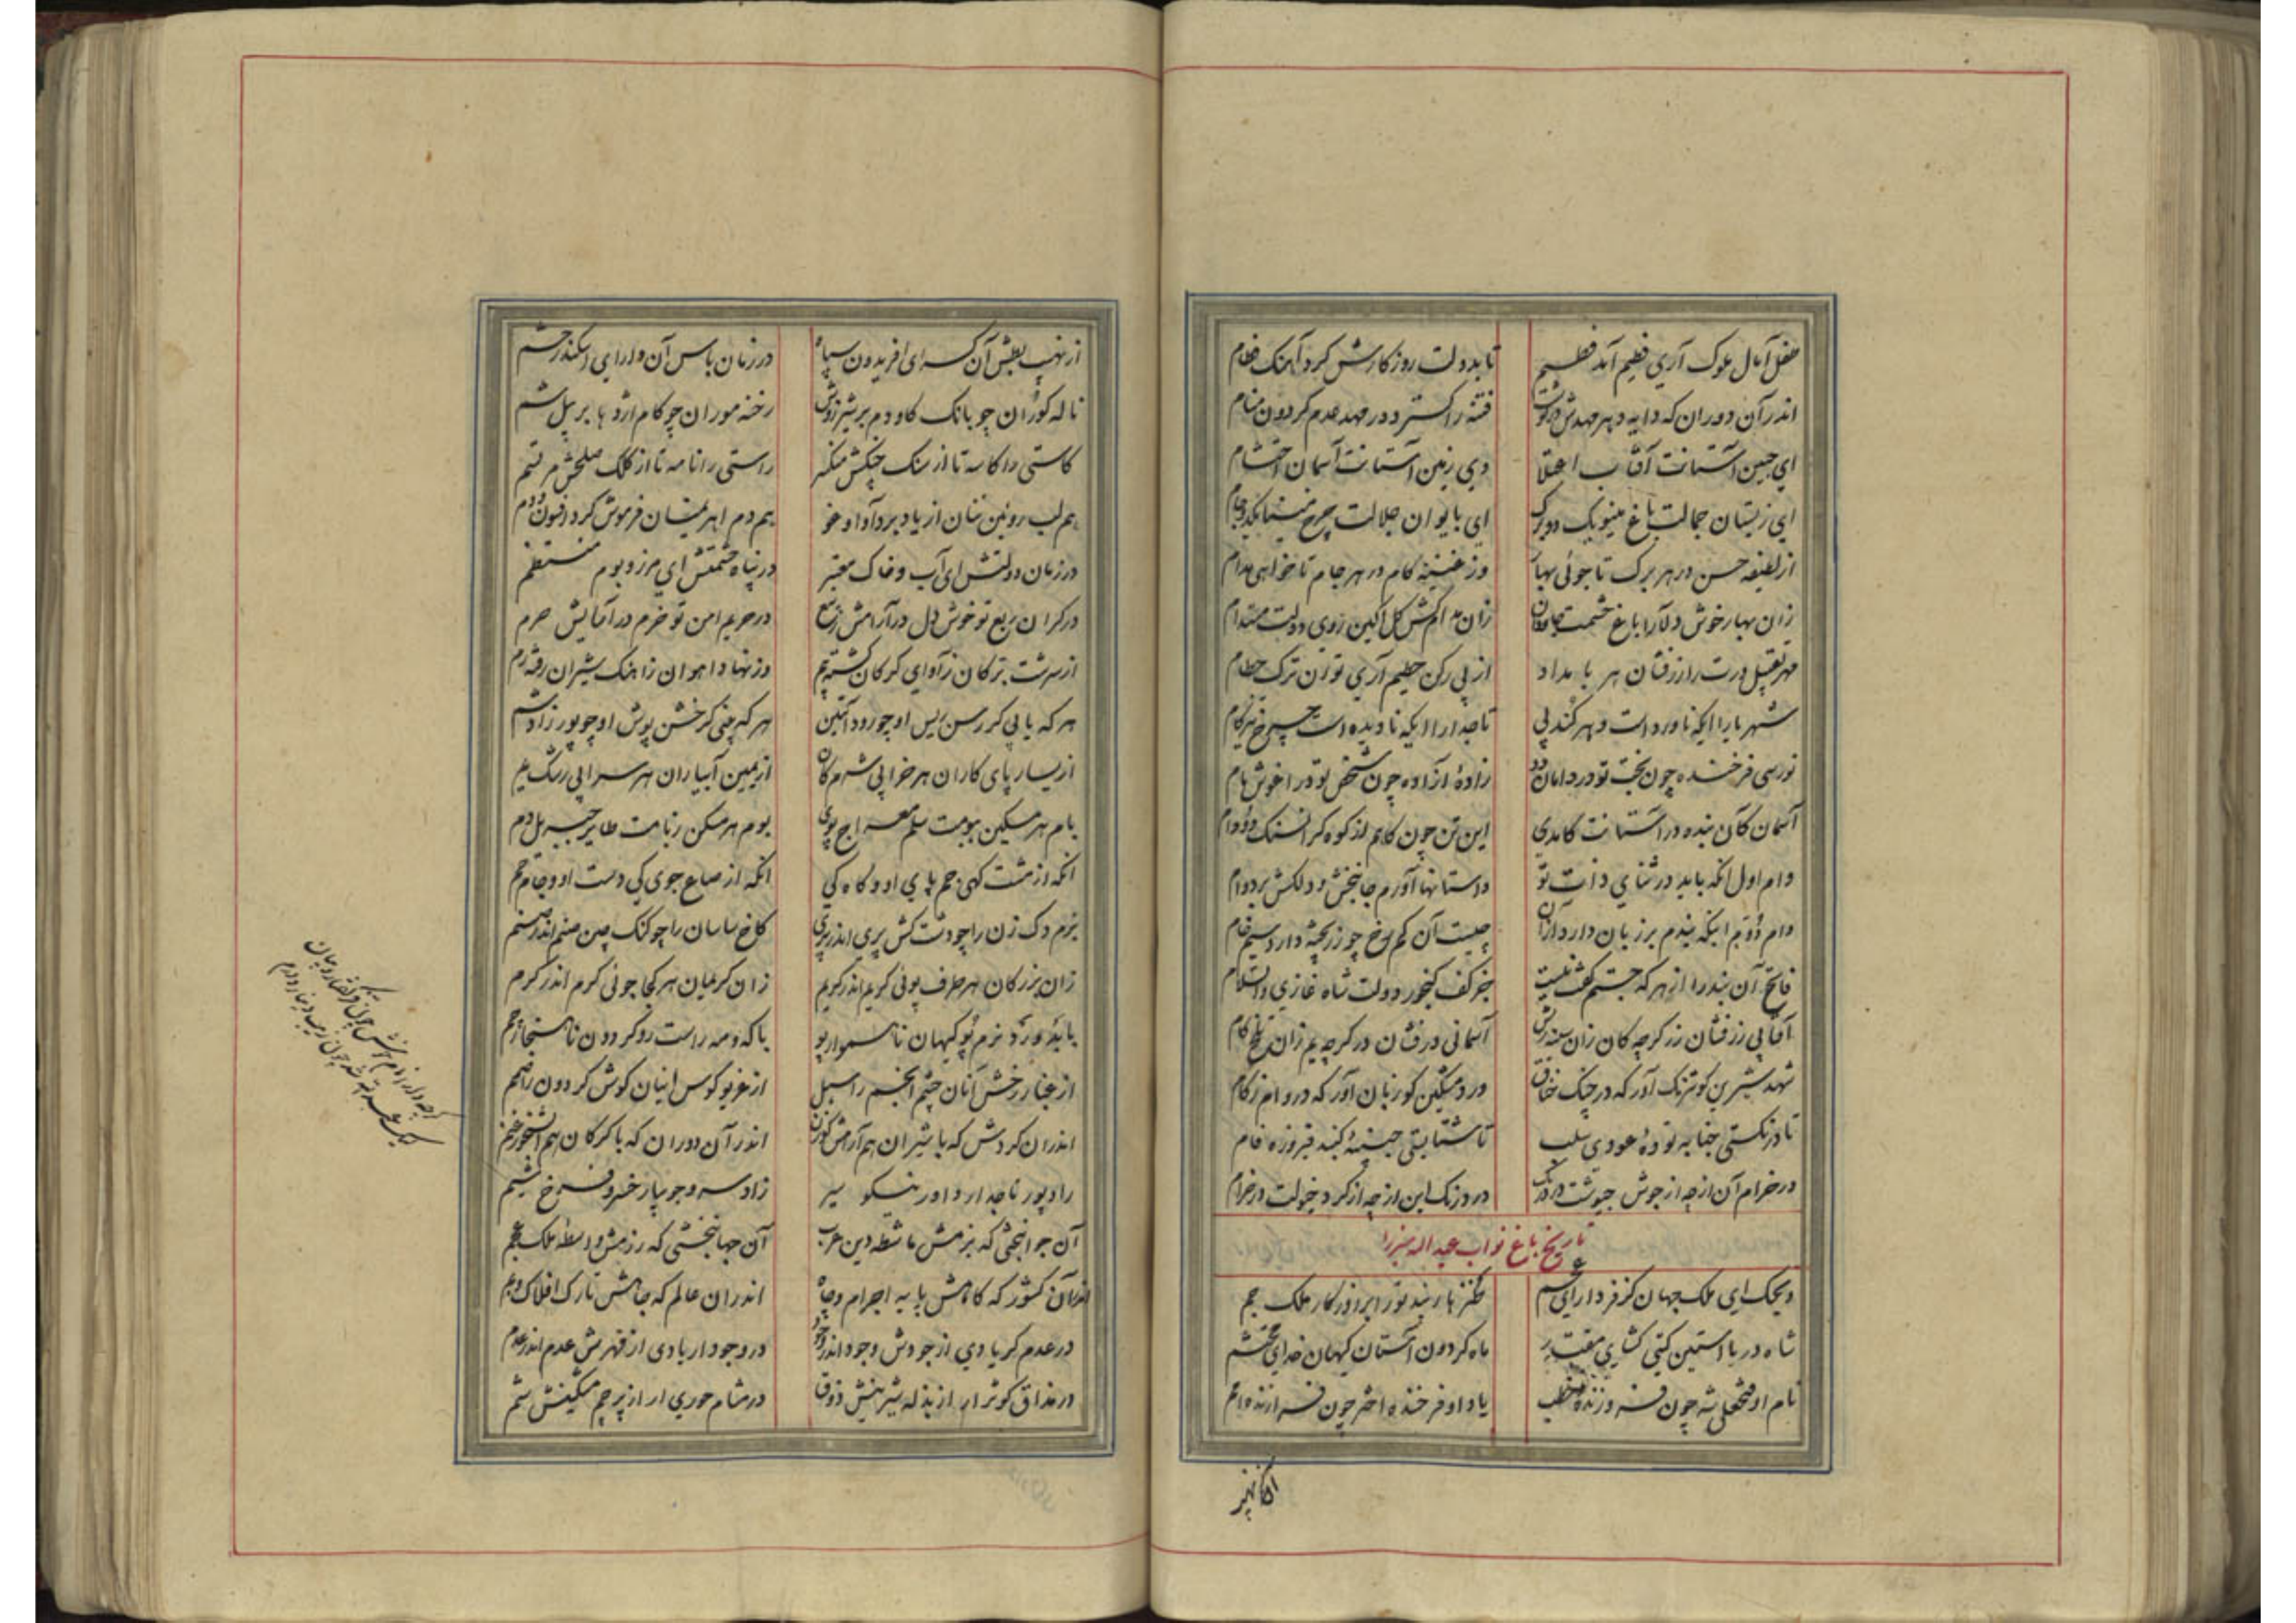 طفل آمال ملوک آری فطیم آمد فطیم
تا بدولت روزکارش کرد آهنک فطام
اندر آن دوران که دایه دهر مهدش در کوشت
فتنه را کسترد در مهد عدم کردون منام
ای جبین آستانت آفتاب اعتلا
وی زمین آستانت آسمان احتشام
ای زبستان جمالت باغ مینو یک دو برک
ای با یوان جلالت چرخ مینا یکدو جام
از لطیفه حسن در هر برک تا جوئی بهار
وز غنیمه کام در هر جام تا خواهی مدام
زان بهار خوش دلارا باغ حشمت جاودان
زان مدامش کل آکین روی دولت مستدام
بهر تقبیل درت را زرفشان هر بامداد
از پی رکن حطیم آری توان ترک حطام
شهریارا ایکه ناورده است دهر کندپی
تاجدارا ایکه نادیده است چرخ تیزکام
نورسی فرخنده چون بخت تو در دامان دو
زادهٔ آزاده چون شخص تو در اغوش مام
آسمان کان بنده در آستانت کامدی
این تن چون کاهم از کوه کران سنک دو وام
وام اول انکه باید در ثنای ذات تو
داستانها آورم جانبخش و دلکش بر دوام
وام دوم اینکه بندم بر زبان دارد ازان
چیست آن کم رخ چو زر پخته دارد سیم خام
فاتح آن بند را از هر که جستم گفت نیست
جز کف کنجور دولت شاه غازی والسلام
آفتابی زرفشان زر کرچه کان زان سینه ریش
آسمانی درفشان در کرچه یم زان تلخ کام
شهد شیرین کو ترنک آور که در چنک خناق
ورد مشکین کو زبان آور که در دام زکام
تا درنکستی جنابه تودهٔ عودی سلب
تا شتابستی جنیبهٔ کنبد فیروزه فام
در خرام آن از چه از جوش جیوشت در درنک
در درنک این از چه از کرد خیولت در خرام
تاریخ باغ نواب عبدالله میرزا
ویحک ای ملک جهان کز فر دارای عجم
ننکها زیبد تو را بر روزکار ملک جم
شاه دریا آستین کیتی کشای مقتدر
ماه کردون آستان کیهان خدای محتشم
نام او فتحعلی شه چون فره ور زنده خطب
یاد او فرخنده اختر چون فره ارزنده دم
آفتاب نهیب
از نهیب بطش آن کسرای افریدون سپاه
در زمان باس آن دارای اسکندر حشم
ناله کوران چو بانک کاودم بر شیر زوش
رخنه موران چو کام اژدها بر پیل شم
کاستی را کاسه تا از سنک جنکش منکسر
راستی را نامه تا از کلک صلحش مرتسم
هم لب روئین تنان از یاد برد آواو خو
هم دم اهریمنان فرموش کرد افسون و دم
در زمان دولتش ای آب و خاک معتبر
در پناه حشمتش ای مرز و بوم منتظم
در کران ربع تو خوش دل در آرامش ربیع
در حریم امن تو خرم در آسایش حرم
از سرشت بره کان ز آوای کرکان کشته بیم
وز نهاد آهوان ز آهنک شیران رفته رم
هر که یابی کر رسن ریس او چو رود آبتین
هر که بینی کر خشن پوش او چو پور زادشم
از یسار پای کاران هر خرابی شرم کان
از یمین آبیاران هر سرابی رشک یم
بام هر مسکین ببومت سلم معراج پوی
بوم هر مسکن زبامت طایر جبریل دم
انکه از مشت کهی جم پای او و کاه کی
انکه از صاع جوی کی دست او و جام جم
بزم دک زن را چو دشت کش پری اندر پری
کاخ ساسان را چو کنک چین صنم اندر صنم
زان بزرکان هر طرف پوئی کریم اندر کریم
زان کریمان هر کجا جوئی کرم اندر کرم
با که و مه راست رو کردون ناهنجار چم
از غبار رخش آنان چشم انجم را سبل
از غریو کوس اینان کوش کردون را صمم
اندران کردش که با شیران هم آرامش کوزن
اندر آن دوران که با کرکان هم آبشخور غنم
راد پور تاجدار داور نیکو سیر
زاد سرو جویبار خسرو فرخ شیم
آن جوانبختی که بزمش ماشطه دین عرب
آن جهانبخشی که رزمش واسطه ملک عجم
اندرآن کشور که کاهش پایه اجرام و چاه
اندران عالم که جاهش تارک افلاک و بم
در عدم کر یادی از جودش وجود اندر وجود
در وجود ار یادی از قهرش عدم اندر عدم
در مذاق کوثر ار از بذله شیرینش ذوق
در مشام حوری ار از پرچم مشکینش شم